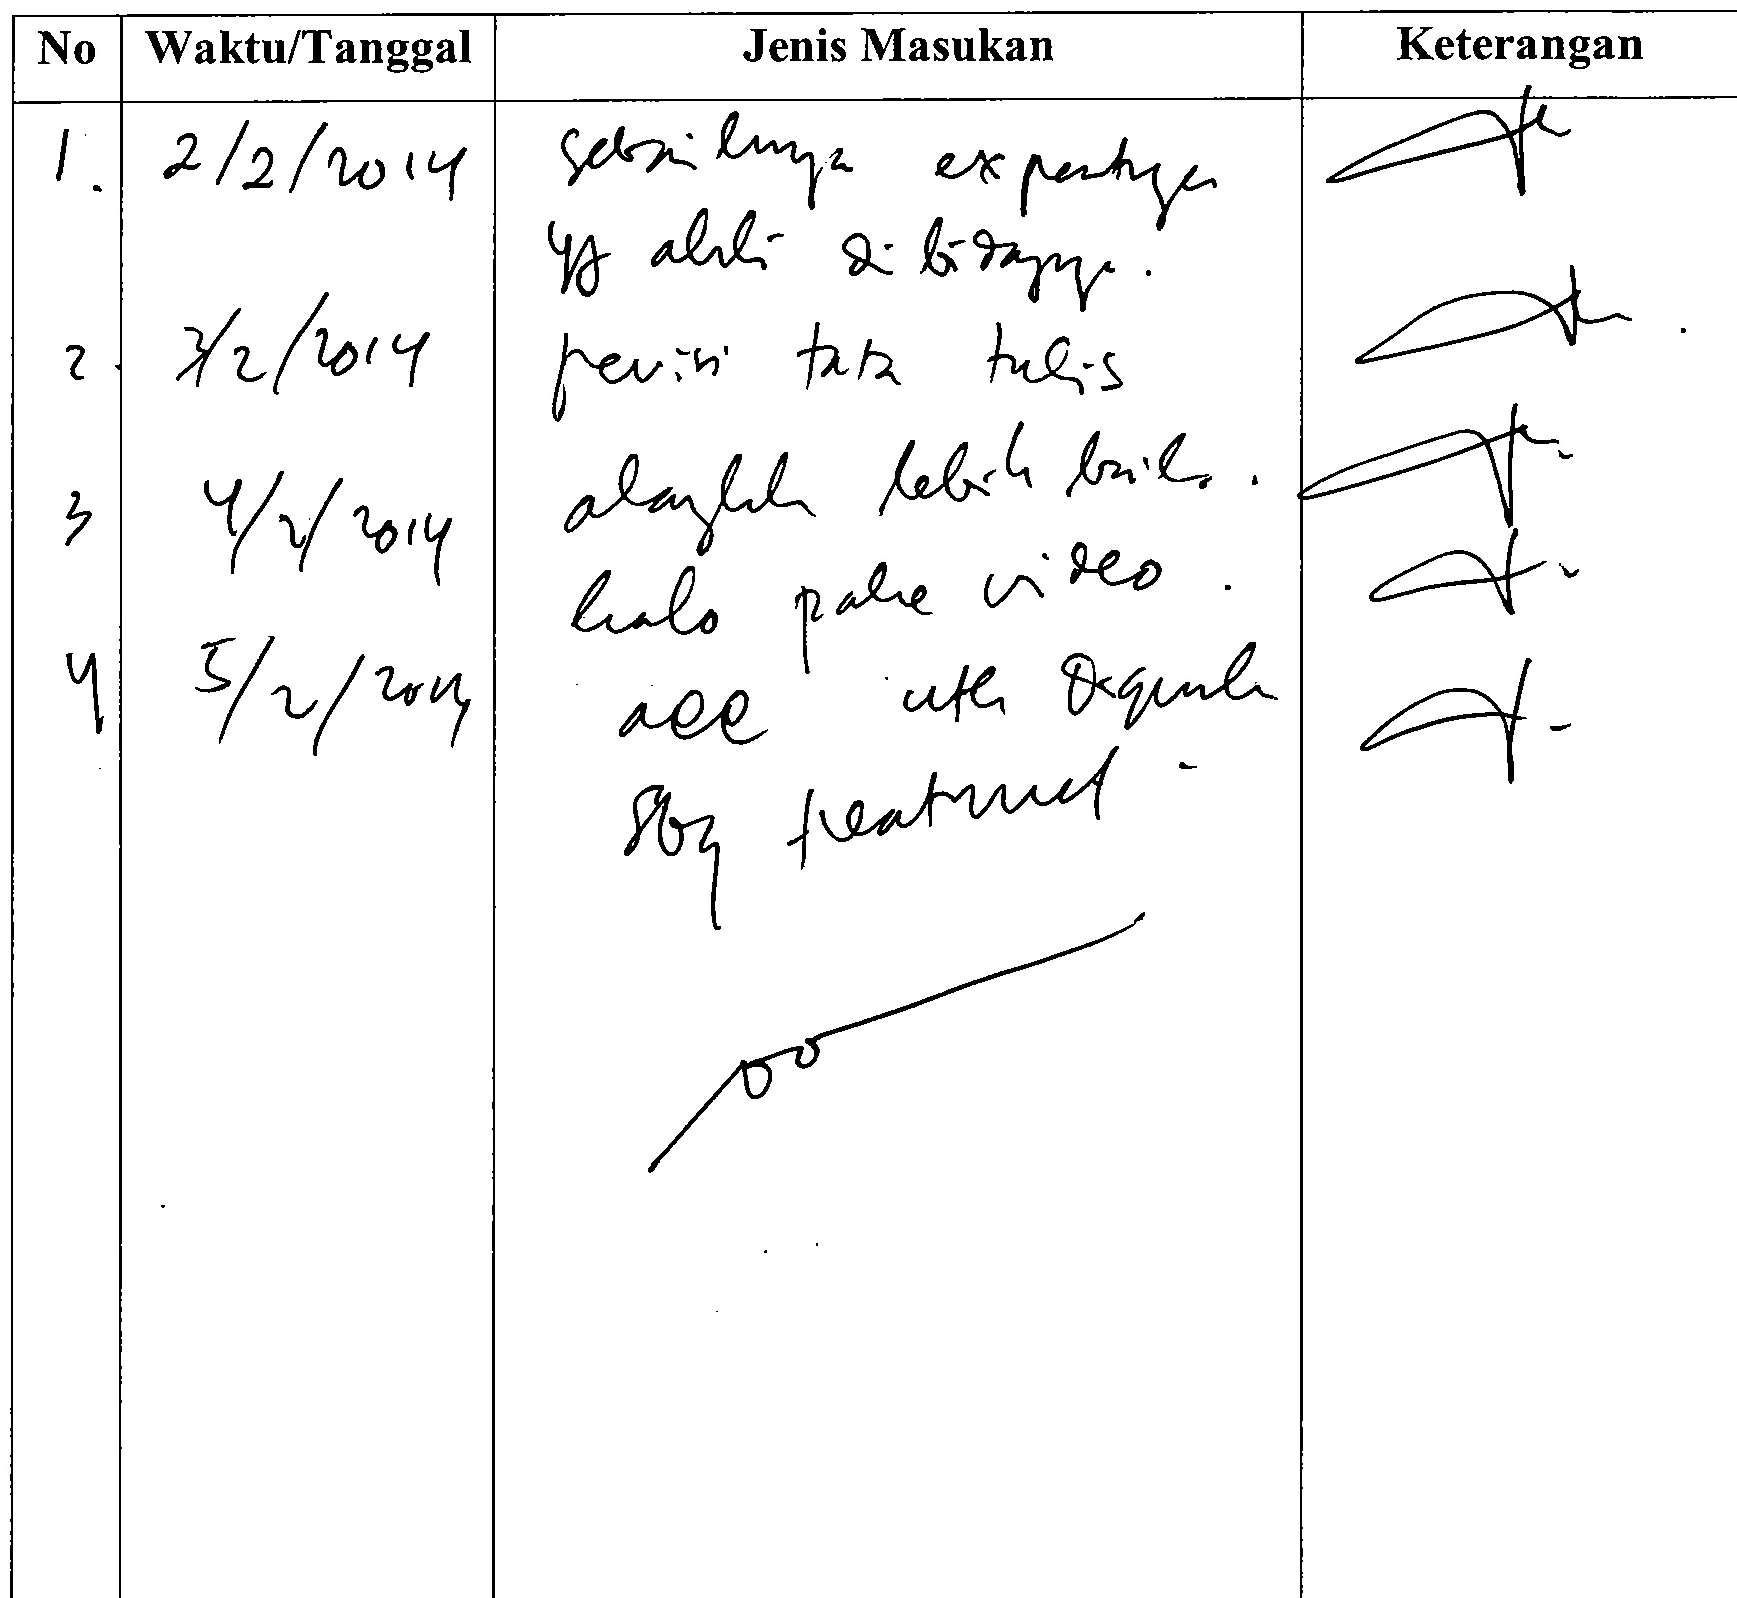 No Waktu/Tanggal Jenis Masukan Keterangan
1. 2/2/2014 sebaiknya expertnya
yg ahli di bidangnya.
2. 3/2/2014 revisi tata tulis
3 4/2/2014 alangkah lebih baik.
kalo pake video.
4 5/2/2014 acc utk
sbg treatment